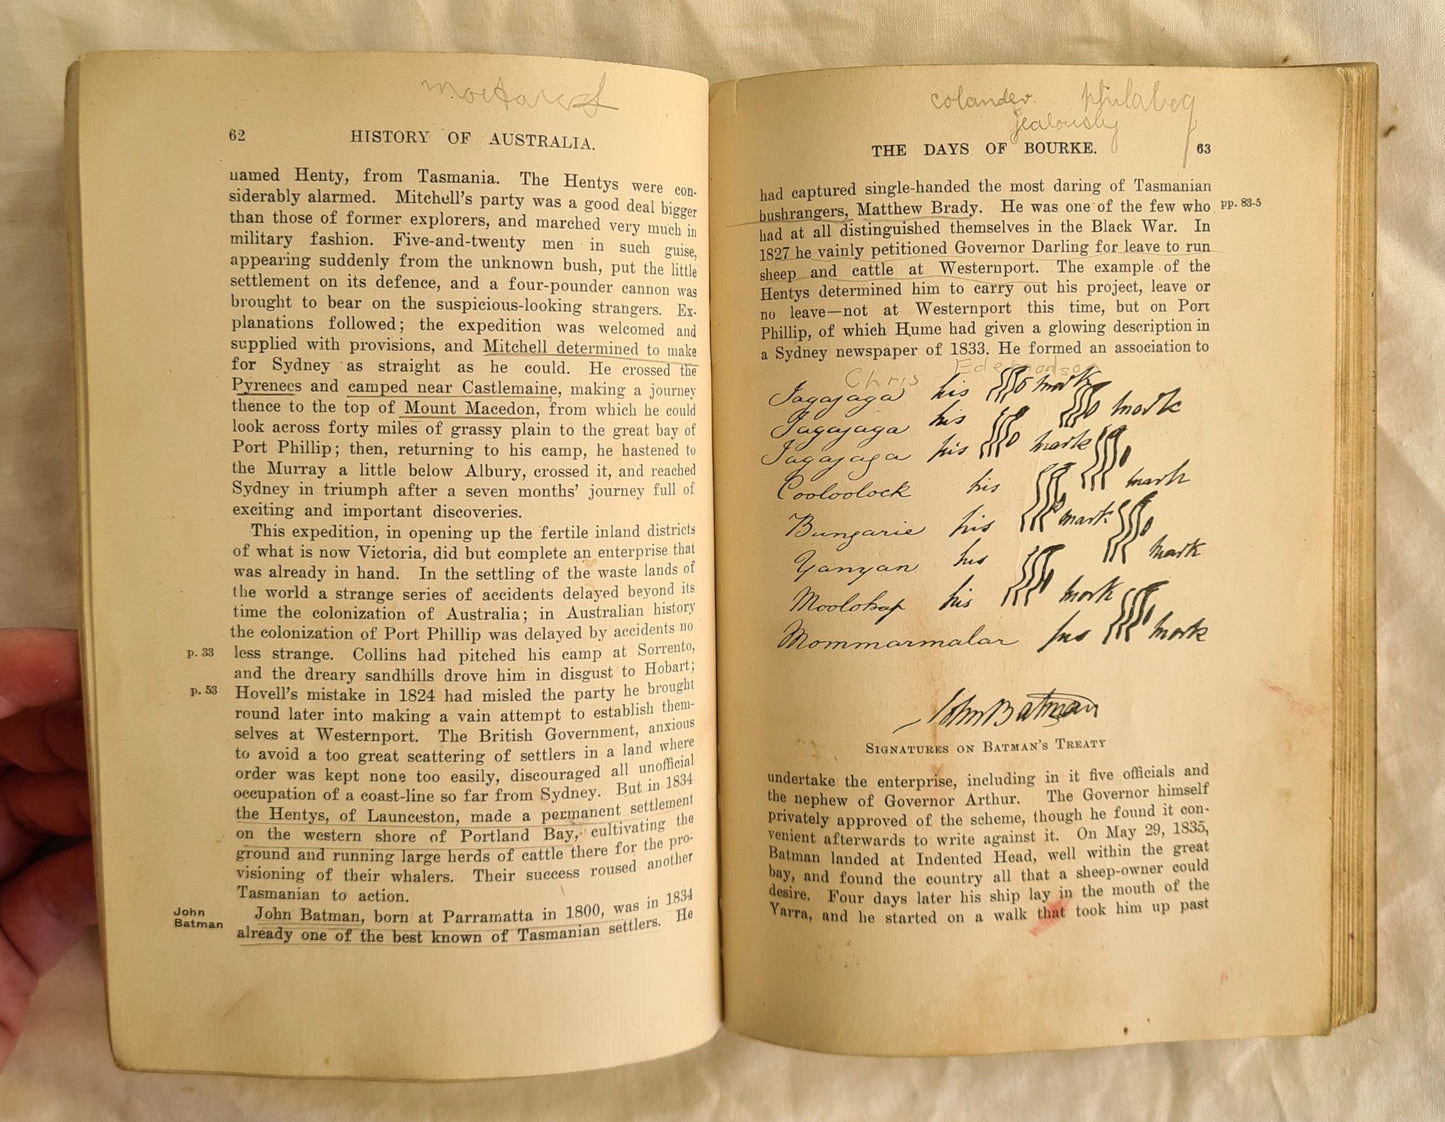 62 HISTORY OF AUSTRALIA.
named Henty, from Tasmania. The Hentys were con-
siderably alarmed. Mitchell's party was a good deal bigger
than those of former explorers, and marched very much in
military fashion. Five-and-twenty men in such guise,
appearing suddenly from the unknown bush, put the little
settlement on its defence, and a four-pounder cannon was
brought to bear on the suspicious-looking strangers. Ex-
planations followed; the expedition was welcomed and
supplied with provisions, and Mitchell determined to make
for Sydney as straight as he could. He crossed the
Pyrenees and camped near Castlemaine, making a journey
thence to the top of Mount Macedon, from which he could
look across forty miles of grassy plain to the great bay of
Port Phillip; then, returning to his camp, he hastened to
the Murray a little below Albury, crossed it, and reached
Sydney in triumph after a seven months' journey full of
exciting and important discoveries.
This expedition, in opening up the fertile inland districts
of what is now Victoria, did but complete an enterprise that
was already in hand. In the settling of the waste lands of
the world a strange series of accidents delayed beyond its
time the colonization of Australia; in Australian history
the colonization of Port Phillip was delayed by accidents no
p. 33 less strange. Collins had pitched his camp at Sorrento,
and the dreary sandhills drove him in disgust to Hobart;
p. 53 Hovell's mistake in 1824 had misled the party he brought
round later into making a vain attempt to establish them-
selves at Westernport. The British Government, anxious
to avoid a too great scattering of settlers in a land where
order was kept none too easily, discouraged all unofficial
occupation of a coast-line so far from Sydney. But in 1834
the Hentys, of Launceston, made a permanent settlement
on the western shore of Portland Bay, cultivating the
ground and running large herds of cattle there for the pro-
visioning of their whalers. Their success roused another
Tasmanian to action.
John Batman
John Batman, born at Parramatta in 1800, was in 1834
already one of the best known of Tasmanian settlers. He
colander philabeg
jealously
THE DAYS OF BOURKE. 63
had captured single-handed the most daring of Tasmanian
bushrangers, Matthew Brady. He was one of the few who pp. 83-5
had at all distinguished themselves in the Black War. In
1827 he vainly petitioned Governor Darling for leave to run
sheep and cattle at Westernport. The example of the
Hentys determined him to carry out his project, leave or
no leave—not at Westernport this time, but on Port
Phillip, of which Hume had given a glowing description in
a Sydney newspaper of 1833. He formed an association to
Chris
Jagajaga his mark
Jagajaga his mark
Jagajaga his mark
Cooloolock his mark
Bungarie his mark
Yanyan his mark
Moolohap his mark
Mommarmalar his mark
John Batman
SIGNATURES ON BATMAN'S TREATY
undertake the enterprise, including in it five officials and
the nephew of Governor Arthur. The Governor himself
privately approved of the scheme, though he found it con-
venient afterwards to write against it. On May 29, 1835,
Batman landed at Indented Head, well within the great
bay, and found the country all that a sheep-owner could
desire. Four days later his ship lay in the mouth of the
Yarra, and he started on a walk that took him up past